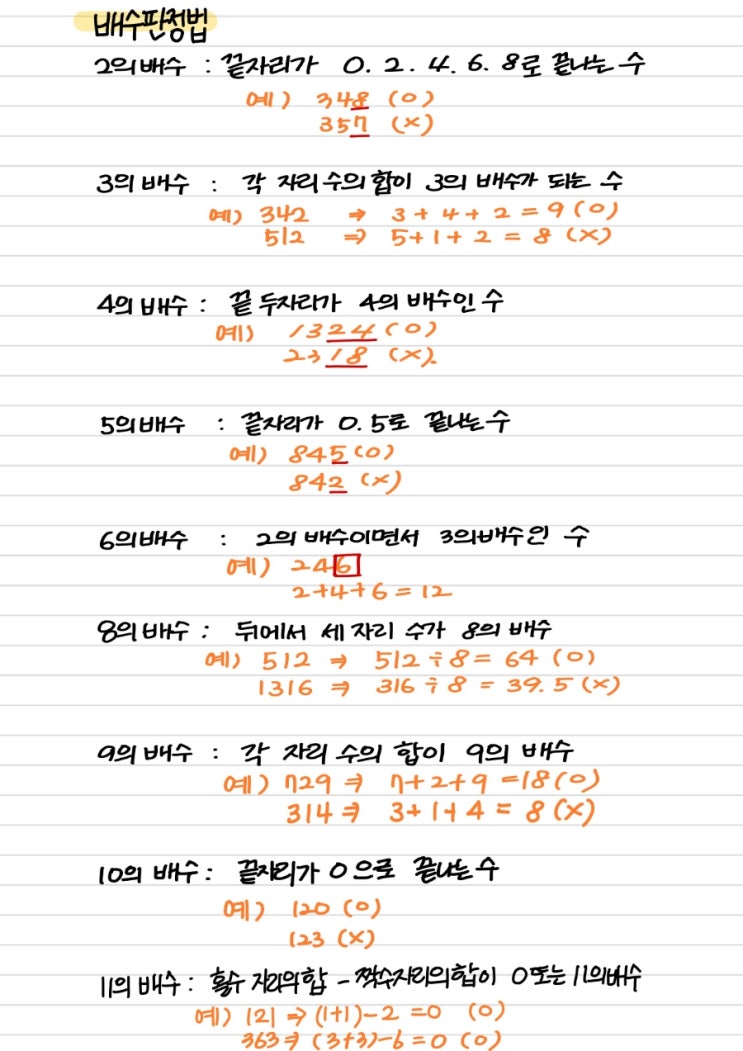 배수판정법
2의 배수 : 끝자리가 0. 2. 4. 6. 8로 끝나는 수
예) 348 (O)
357 (X)
3의 배수 : 각 자리 수의 합이 3의 배수가 되는 수
예) 342 ⇒ 3+4+2=9(O)
512 ⇒ 5+1+2=8 (X)
4의 배수 : 끝 두자리가 4의 배수인 수
예) 1324(O)
2318 (X).
5의 배수 : 끝자리가 0.5로 끝나는 수
예) 845(O)
842 (X)
6의 배수 : 2의 배수이면서 3의 배수인 수
예) 246
2+4+6=12
8의 배수 : 뒤에서 세 자리 수가 8의 배수
예) 512 ⇒ 512÷8= 64 (O)
1316 ⇒ 316÷8 = 39.5(X)
9의 배수 : 각 자리 수의 합이 9의 배수
예) 729 ⇒ 7+2+9=18(O)
314 ⇒ 3+1+4=8(X)
10의 배수 : 끝자리가 0으로 끝나는 수
예) 120 (O)
123 (X)
11의 배수 : 홀수 자리의 합 - 짝수자리의 합이 0또는 11의배수
예) 121 ⇒ (1+1)-2=0 (O)
363 ⇒ (3+3)-6=0 (O)